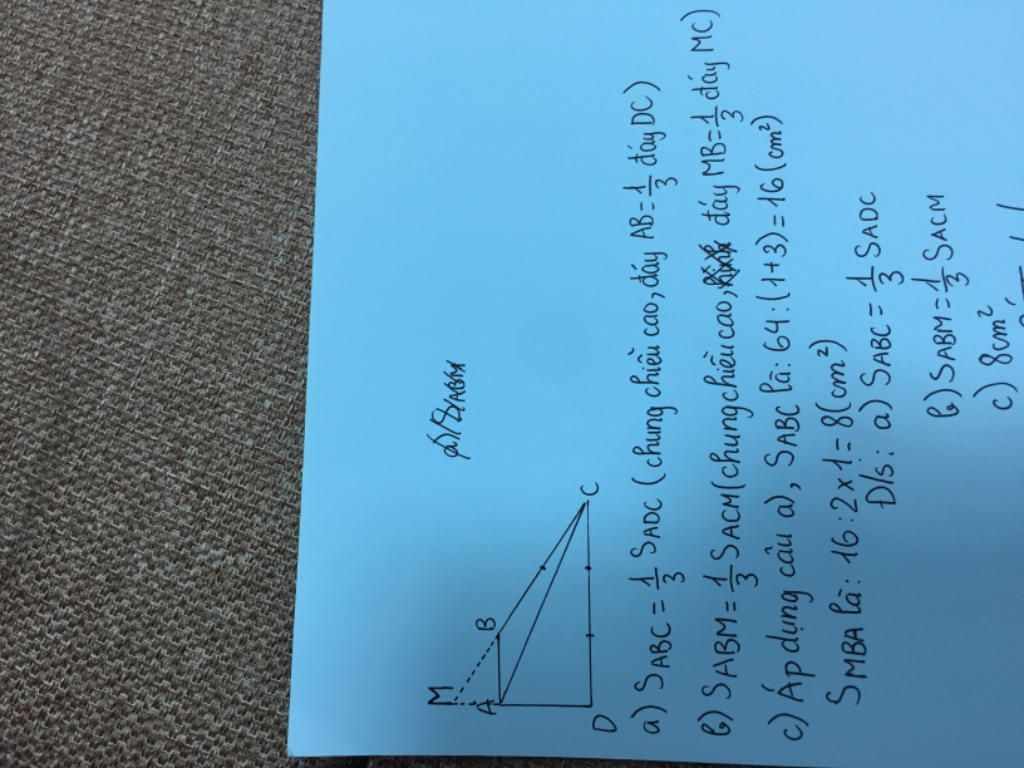 M
A
B
D
C
a) SABC = 1/3 SADC (chung chiều cao, đáy AB = 1/3 đáy DC)
b) SABM = 1/3 SACM (chung chiều cao, đáy MB = 1/3 đáy MC)
c) Áp dụng câu a), SABC là: 64 : (1+3) = 16 (cm²)
SMBA là: 16 : 2 x 1 = 8 (cm²)
Đ/s: a) SABC = 1/3 SADC
b) SABM = 1/3 SACM
c) 8cm²